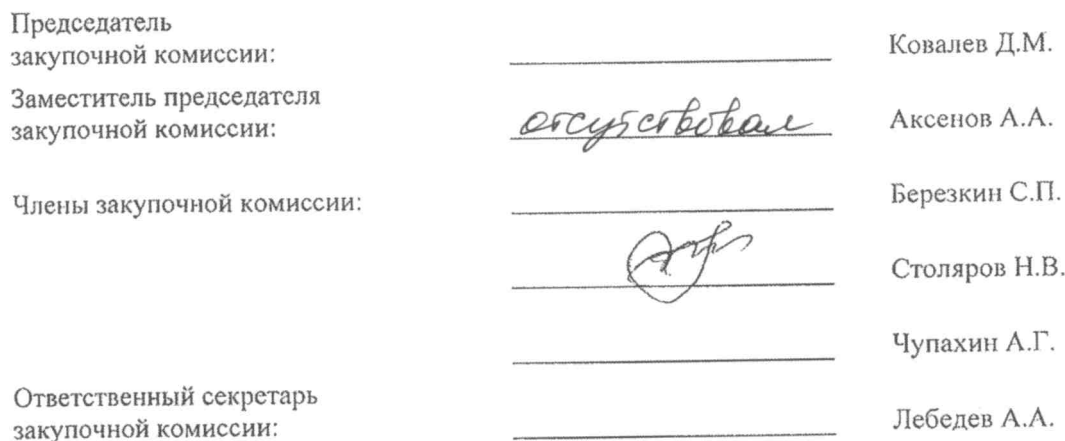 Председатель
закупочной комиссии: Ковалев Д.М.
Заместитель председателя
закупочной комиссии: отсутствовал Аксенов А.А.
Члены закупочной комиссии: Березкин С.П.
Столяров Н.В.
Чупахин А.Г.
Ответственный секретарь
закупочной комиссии: Лебедев А.А.